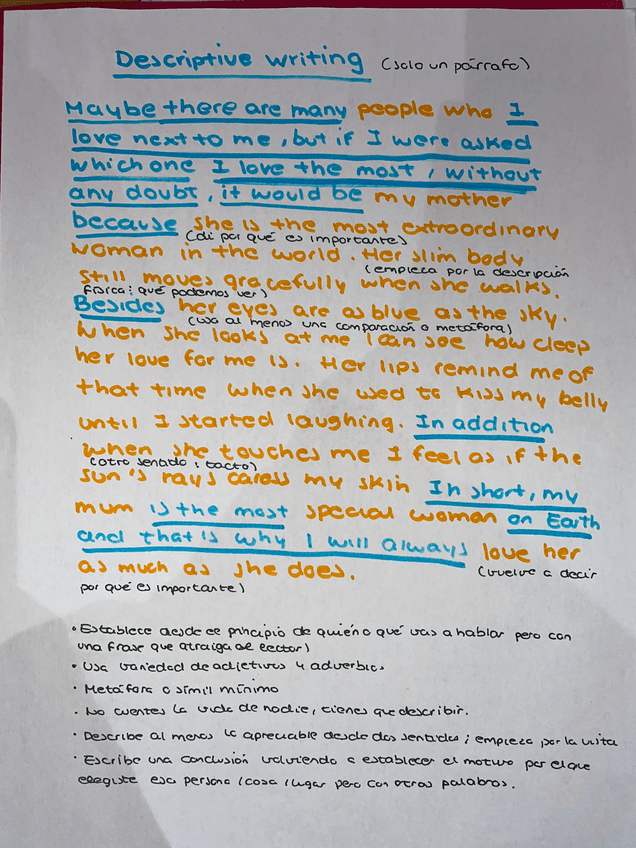 Descriptive writing (solo un párrafo)
Maybe there are many people who I
love next to me, but if I were asked
which one I love the most, without
any doubt, it would be my mother
because she is the most extraordinary
(di por qué es importante)
woman in the world. Her slim body
(empieza por la descripción
still moves gracefully when she walks.
física: qué podemos ver)
Besides her eyes are as blue as the sky.
(usa al menos una comparación o metáfora)
When she looks at me I can see how deep
her love for me is. Her lips remind me of
that time when she used to kiss my belly
until I started laughing. In addition
when she touches me I feel as if the
(otro sentido: tacto)
sun's rays caress my skin In short, my
mum is the most special woman on Earth
and that is why I will always love her
as much as she does. (vuelve a decir
por qué es importante)
• Establece desde el principio de quién o qué vas a hablar pero con
una frase que atraiga al lector)
• Usa variedad de adjetivos y adverbios
• Metáfora o símil mínimo
• No cuentes la vida de nadie, tienes que describir.
• Describe al menos lo apreciable desde dos sentidos; empieza por la vista
• Escribe una conclusión volviendo a establecer el motivo por el que
elegiste esa persona/cosa/lugar pero con otras palabras.